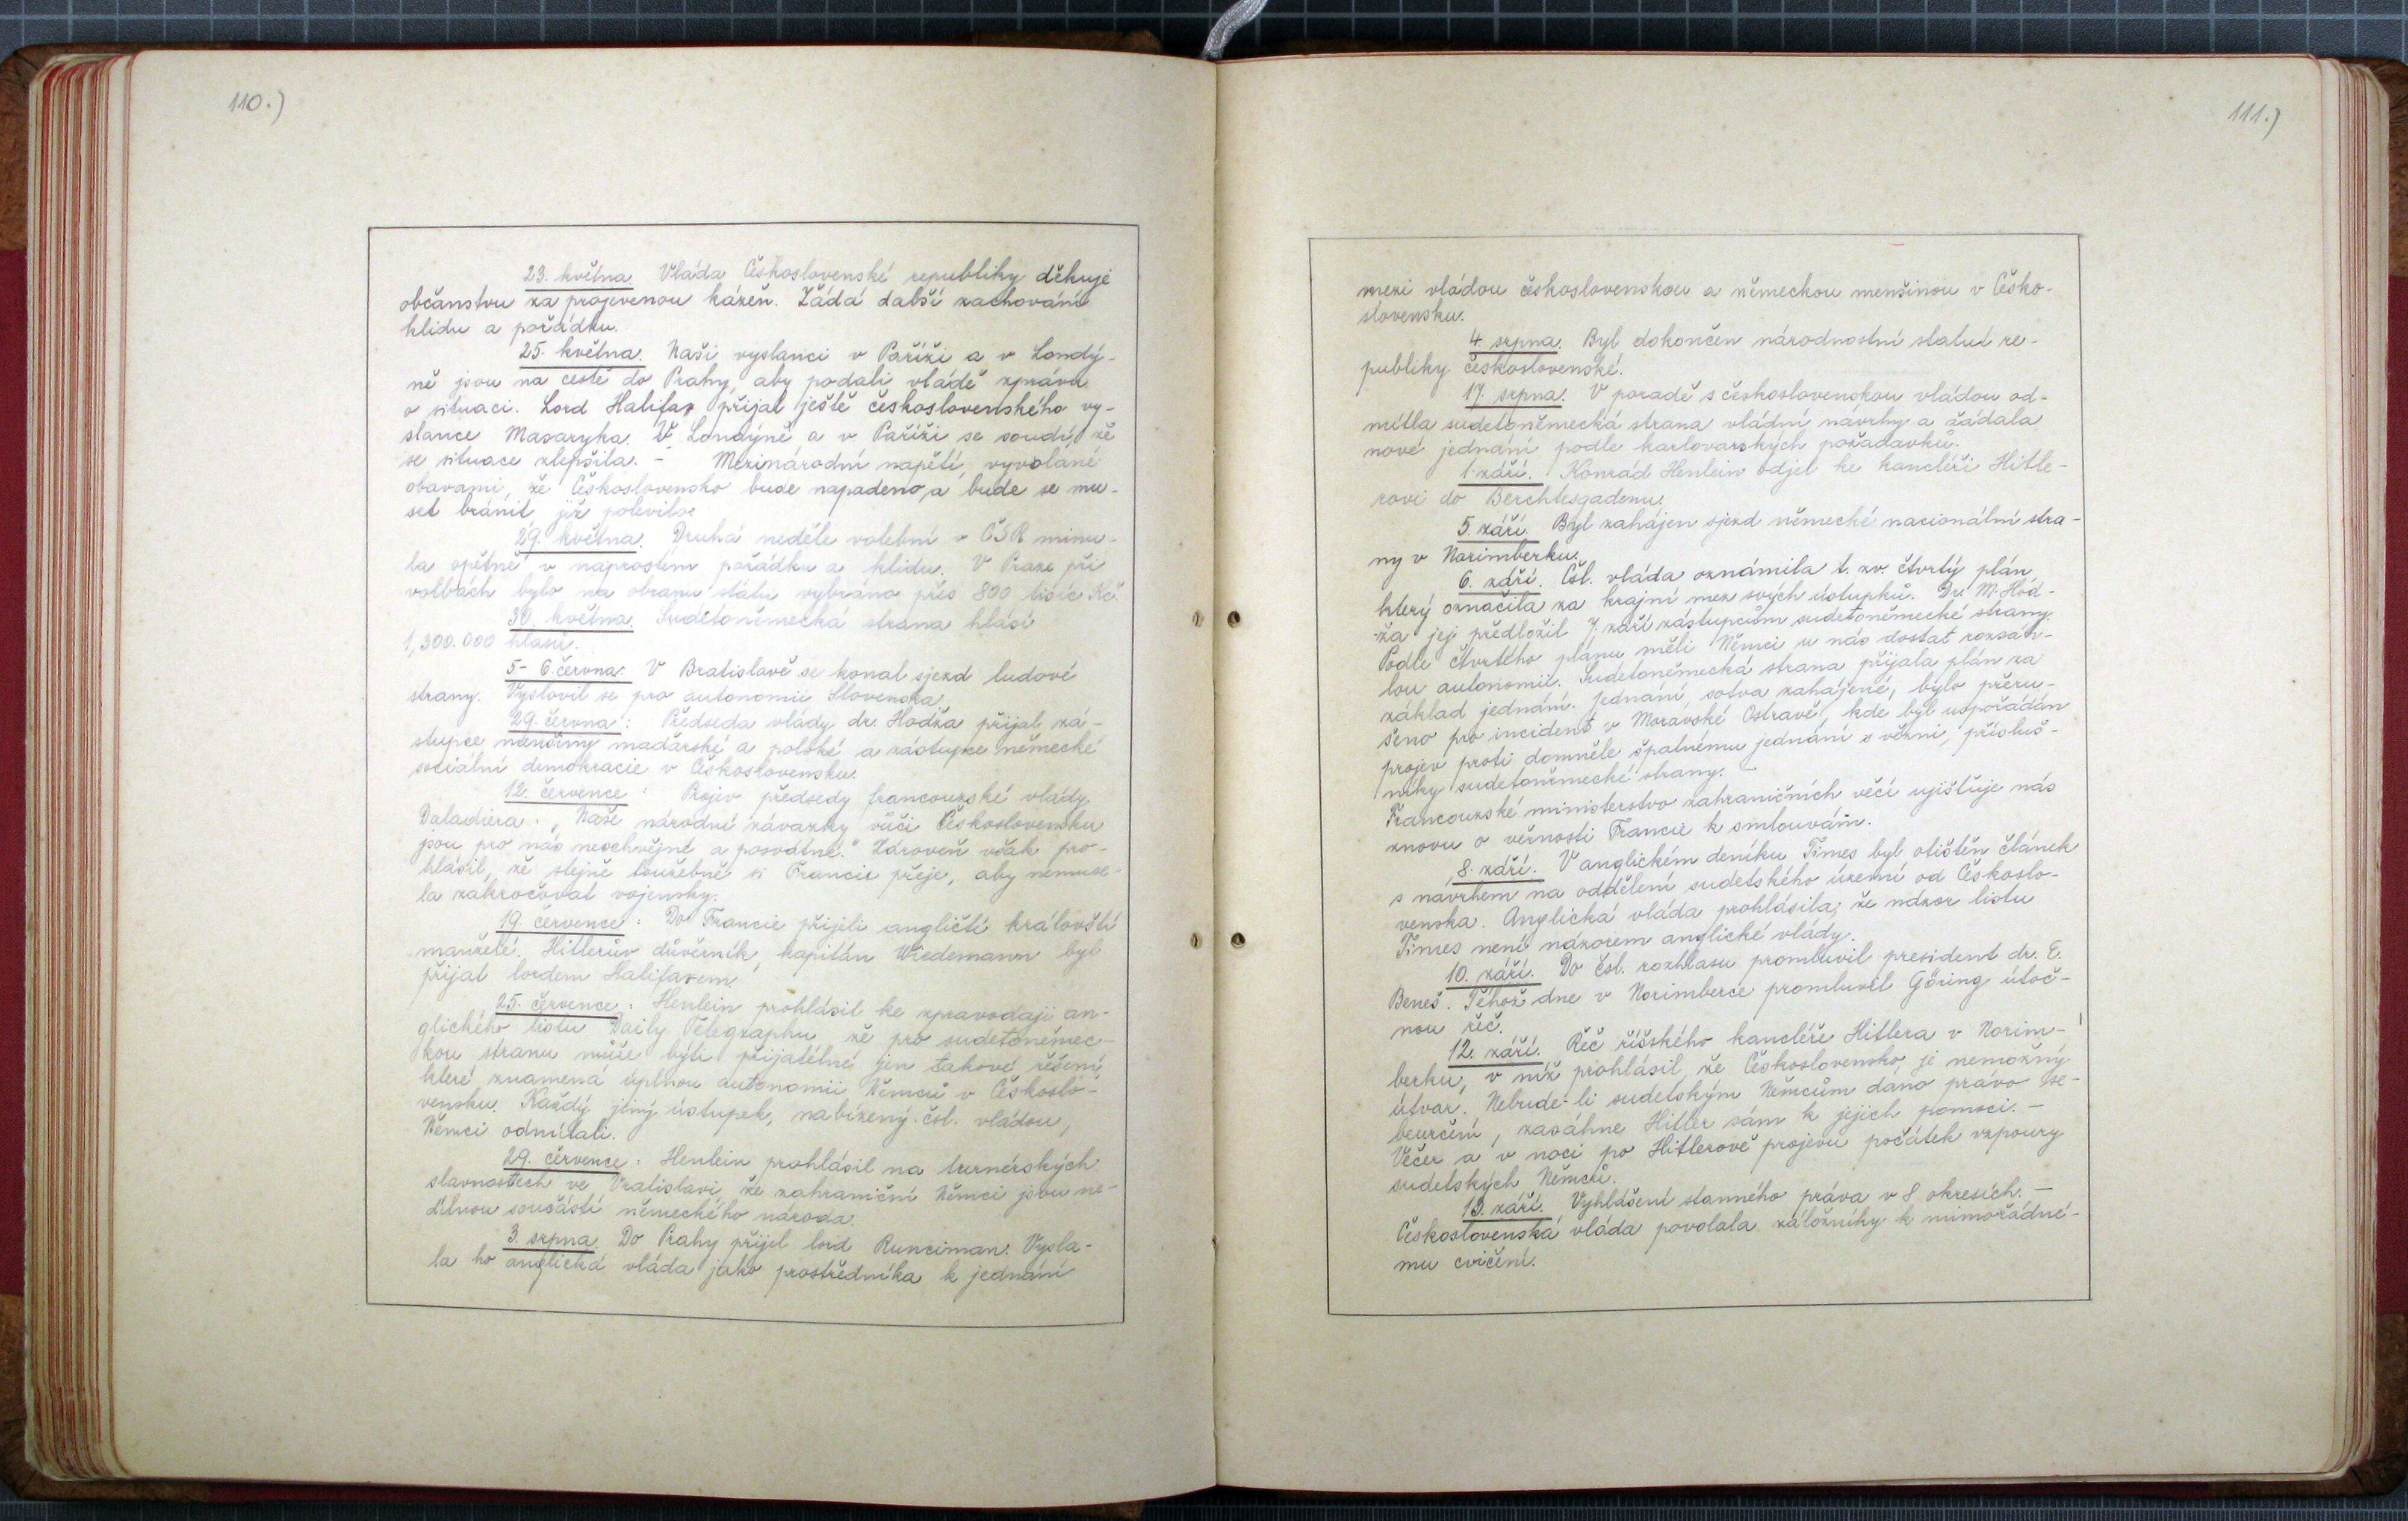 110.)
23. května. Vláda Československé republiky děkuje
občanstvu za projevenou kázeň. Žádá další zachování
klidu a pořádku.
25. května. Naši vyslanci v Paříži a v Londý-
ně jsou na cestě do Prahy, aby podali vládě zprávu
o situaci. Lord Halifax přijal ještě československého vy-
slance Masaryka. V Londýně a v Paříži se soudí, že
se situace zlepšila. - Mezinárodní napětí, vyvolané
obavami, že Československo bude napadeno, a bude se mu-
set bránit, již polevilo.
29. května. Druhá neděle volební v ČSR minu-
la opětně v naprostém pořádku a klidu. V Praze při
volbách bylo na obranu státu vybráno přes 800 tisíc Kč.
30. května. Sudetoněmecká strana hlásí
1,300.000 hlasů.
5-6. června: V Bratislavě se konal sjezd ludové
strany. Vyslovil se pro autonomii Slovenska.
29. června: Předseda vlády dr. Hodža přijal zá-
stupce menšiny maďarské a polské a zástupce německé
sociální demokracie v Československu.
12. července: Projev předsedy francouzské vlády.
Daladiera: „Naše národní závazky vůči Československu
jsou pro nás neochvějné a posvátné." Zároveň však pro-
hlásil, že stejně toužebně si Francie přeje, aby nemuse-
la zakročovat vojensky.
19. července: Do Francie přijeli angličtí královští
manželé. Hitlerův důvěrník, kapitán Wiedemann byl
přijat lordem Halifaxem.
25. července: Henlein prohlásil ke zpravodaji an-
glického listu Daily Telegraphu že pro sudetoněmec-
kou stranu může býti přijatelné jen takové řešení
které znamená úplnou autonomii Němců v Českoslo-
vensku. Každý jiný ústupek, nabízený čsl. vládou,
Němci odmítali.
29. července: Henlein prohlásil na turnérských
slavnostech ve Vratislavi že zahraniční Němci jsou ne-
dílnou součástí německého národa.
3. srpna. Do Prahy přijel lord Runciman. Vysla-
la ho anglická vláda jako prostředníka k jednání
111.)
mezi vládou československou a německou menšinou v Česko-
slovensku.
4. srpna. Byl dokončen národnostní statut re-
publiky československé.
17. srpna. V poradě s československou vládou od-
mítla sudetoněmecká strana vládní návrhy a žádala
nové jednání podle karlovarských požadavků.
1. září. Konrád Henlein odjel ke kancléři Hitle-
rovi do Berchtesgadenu.
5. září. Byl zahájen sjezd německé nacionální stra-
ny v Norimberku.
6. září. Čsl. vláda oznámila t. zv. čtvrtý plán
který označila za krajní mez svých ústupků. Dr. M. Hod-
ža jej předložil 7. září zástupcům sudetoněmecké strany.
Podle čtvrtého plánu měli Němci u nás dostat rozsáh-
lou autonomii. Sudetoněmecká strana přijala plán za
základ jednání. Jednání, sotva zahájené, bylo přeru-
šeno pro incident v Moravské Ostravě, kde byl uspořádán
projev proti domněle špatnému jednání s vězni, přísluš-
níky sudetoněmecké strany. -
Francouzské ministerstvo zahraničních věcí ujišťuje nás
znovu o věrnosti Francie k smlouvám.
8. září. V anglickém deníku Times byl otištěn článek
s návrhem na oddělení sudetského území od Českoslo-
venska. Anglická vláda prohlásila, že názor listu
Times není názorem anglické vlády.
10. září. Do čsl. rozhlasu promluvil president dr. E.
Beneš. Téhož dne v Norimberce promluvil Göring útoč-
nou řeč.
12. září. Řeč říšského kancléře Hitlera v Norim-
berku, v níž prohlásil, že Československo je nemožný
útvar. Nebude-li sudetským Němcům dáno právo se-
beurčení, zasáhne Hitler sám k jejich pomoci. -
Večer a v noci po Hitlerově projevu počátek vzpoury
sudetských Němců.
13. září. Vyhlášení stanného práva v 8 okresích. -
Československá vláda povolala záložníky k mimořádné-
mu cvičení.